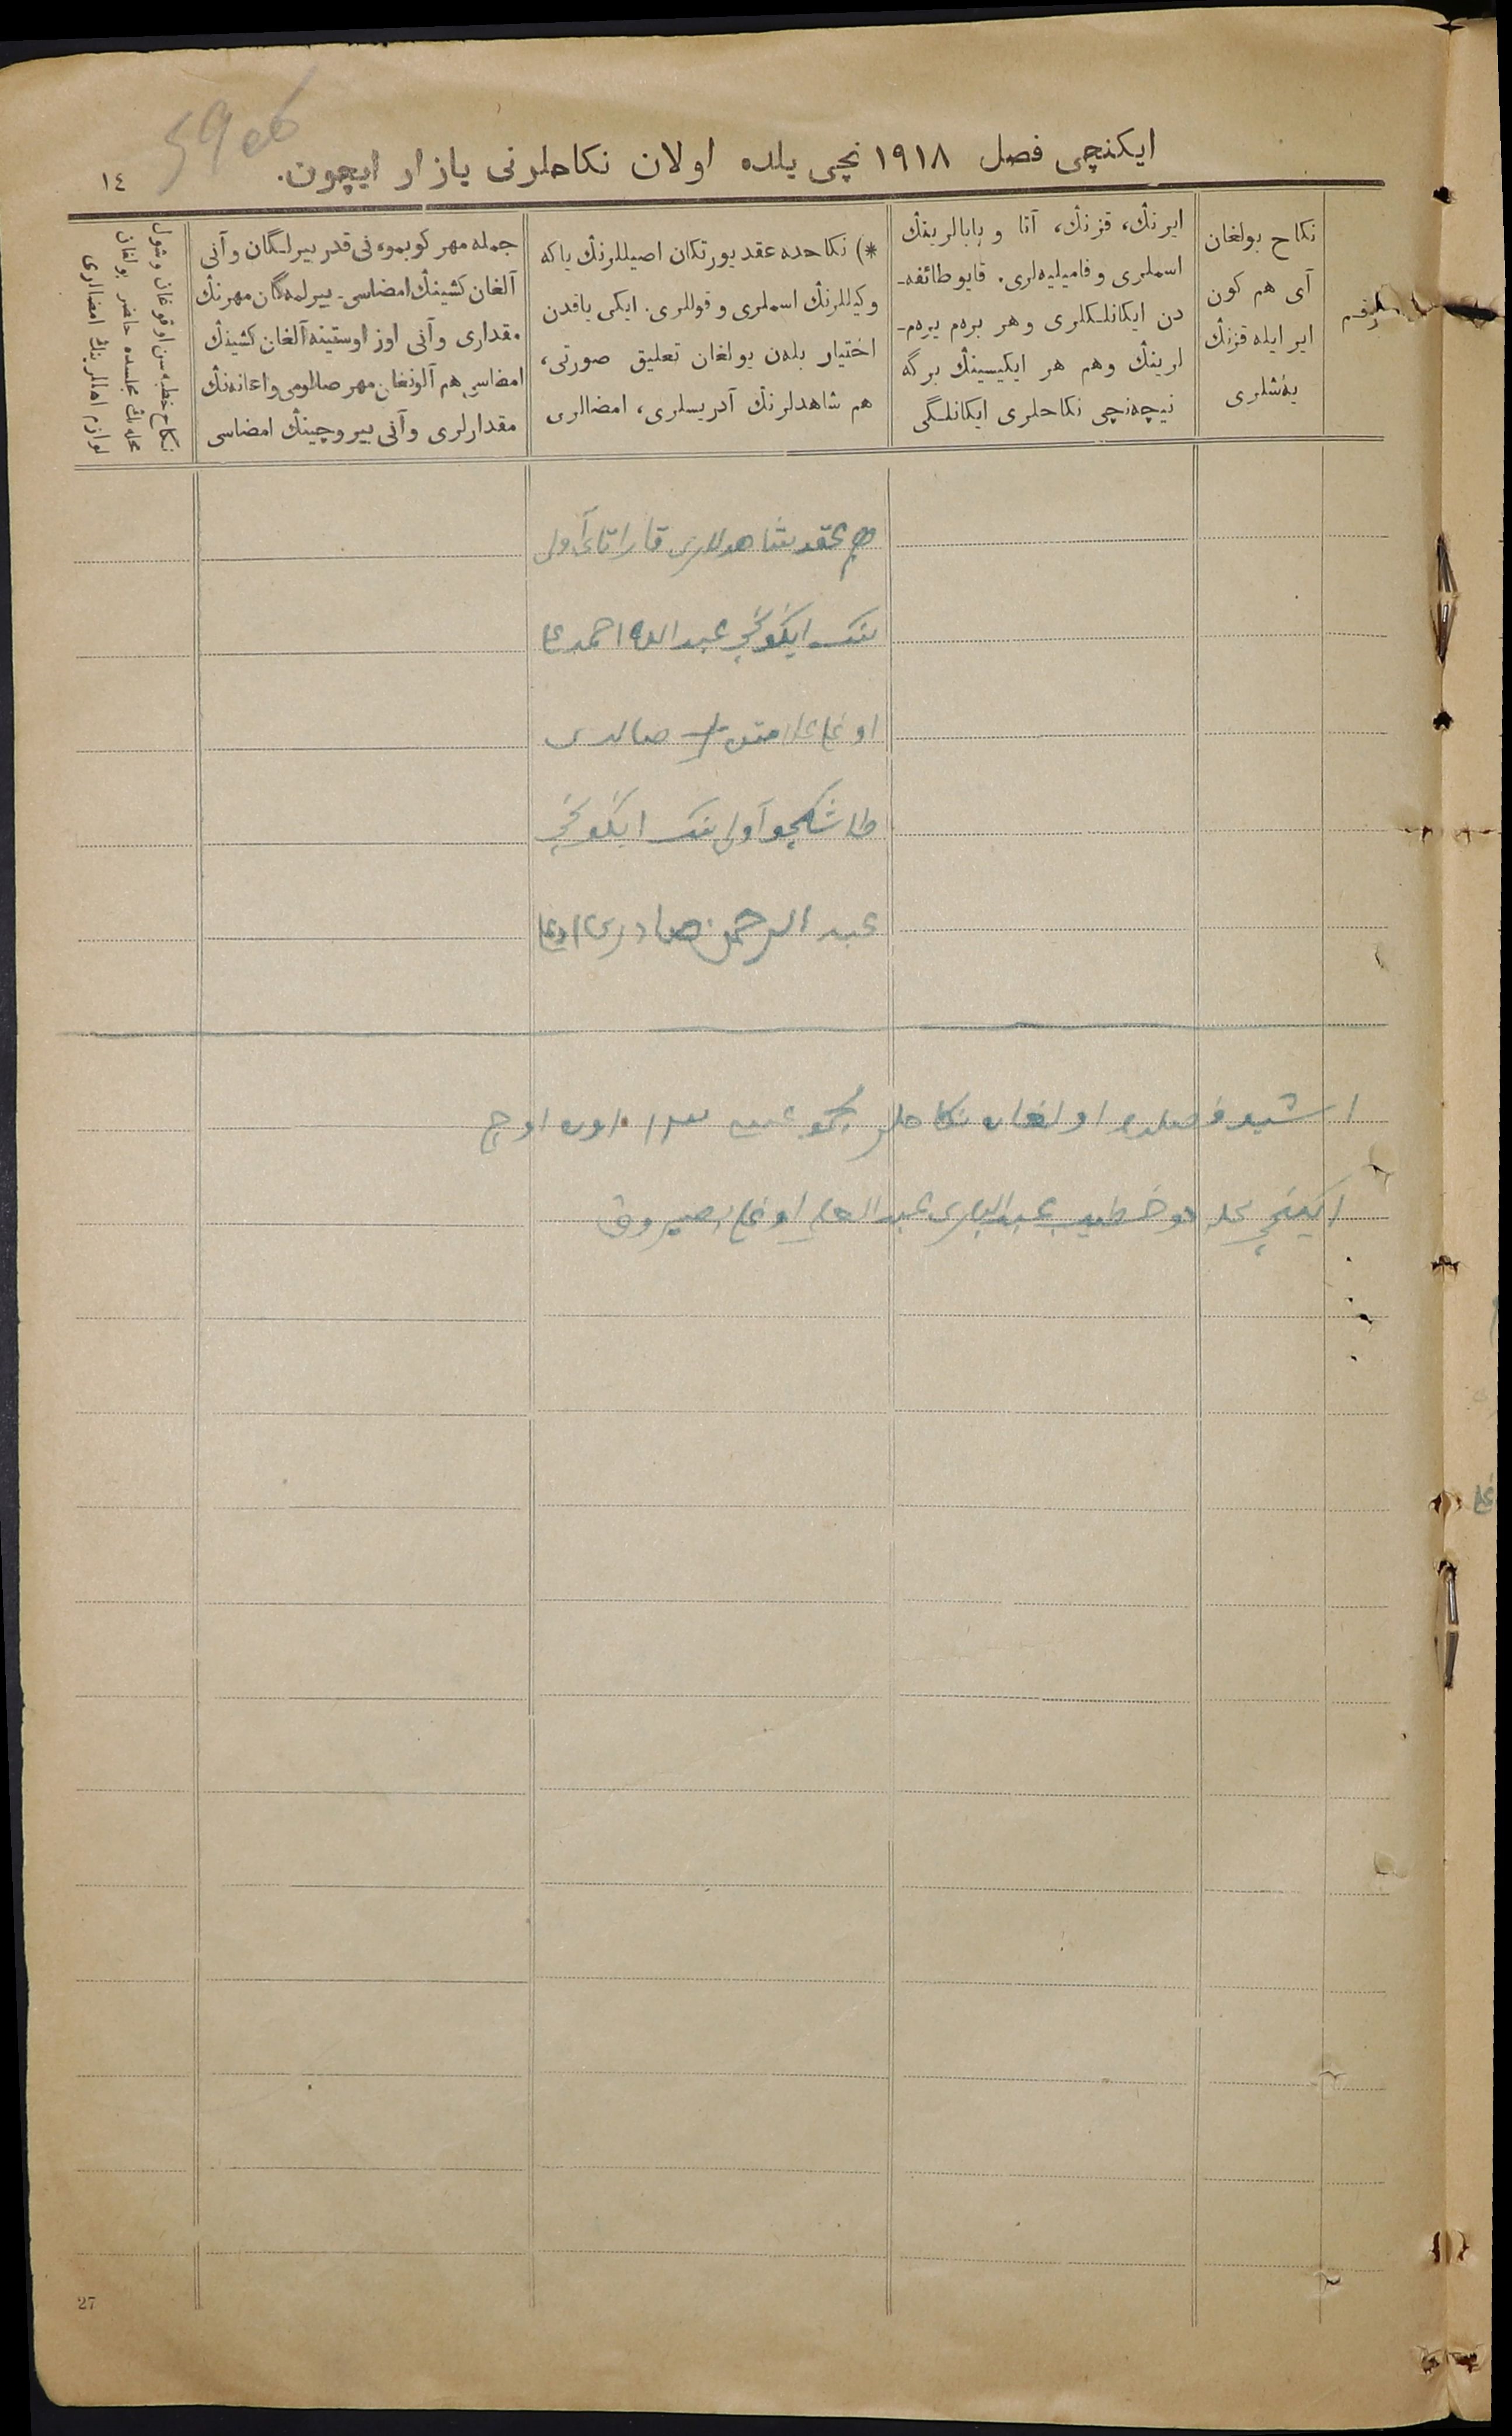 59 об
ایکنچی فصل ١٩١٨ نچی یلده اولان نکاحلرنی یازار ایچون.
١٤
رقم
نکاح بولغان
آی هم کون
ایر ایله قزنڭ
یەشلری
ایرنڭ، قزنڭ، آتا و بابالرینڭ
اسملری و فامیلیەلری. قایو طائفه-
دن ایکانلکلری و هر برەم یرەم-
لرینڭ وهم هر ایکیسینڭ برگه
نیچەنچی نکاحلری ایکانلگی
*) نکاحده عقد یورتکان اصیللرنڭ یاکه
وکیللرنڭ اسملری و قوللری. ایکی یاقدن
اختیار بلەن بولغان تعلیق صورتی،
هم شاهدلرنڭ آدریسلری، امضالری
جمله مهر کوبموء فی قدر بیرلگان و آنی
آلغان کشینڭ امضاسی. بیرلمەگان مهرنڭ
مقداری و آنی اوز اوستینه آلغان کشینڭ
امضاسی هم آلونغان مهر صالومی و اعانەنڭ
مقدارلری و آنی بیروچینڭ امضاسی
نکاح خطبەسن اوقوغان و شول
محلەنڭ مجلسده حاضر بولغان
لوازم اماملرینڭ امضالری
عقد شاهدلاری قاراتای آول
ینک ایکونچی عبدالله احمد
اوغلی صالدی
طاشکچو آولی ینک ایکونچی
عبدالرحمن صادری اوغلی
اولغان نکاحلر ١٣ اون اوچ
ایکنچی محله خطیب عبدالباری اوغلی نصیروف
27